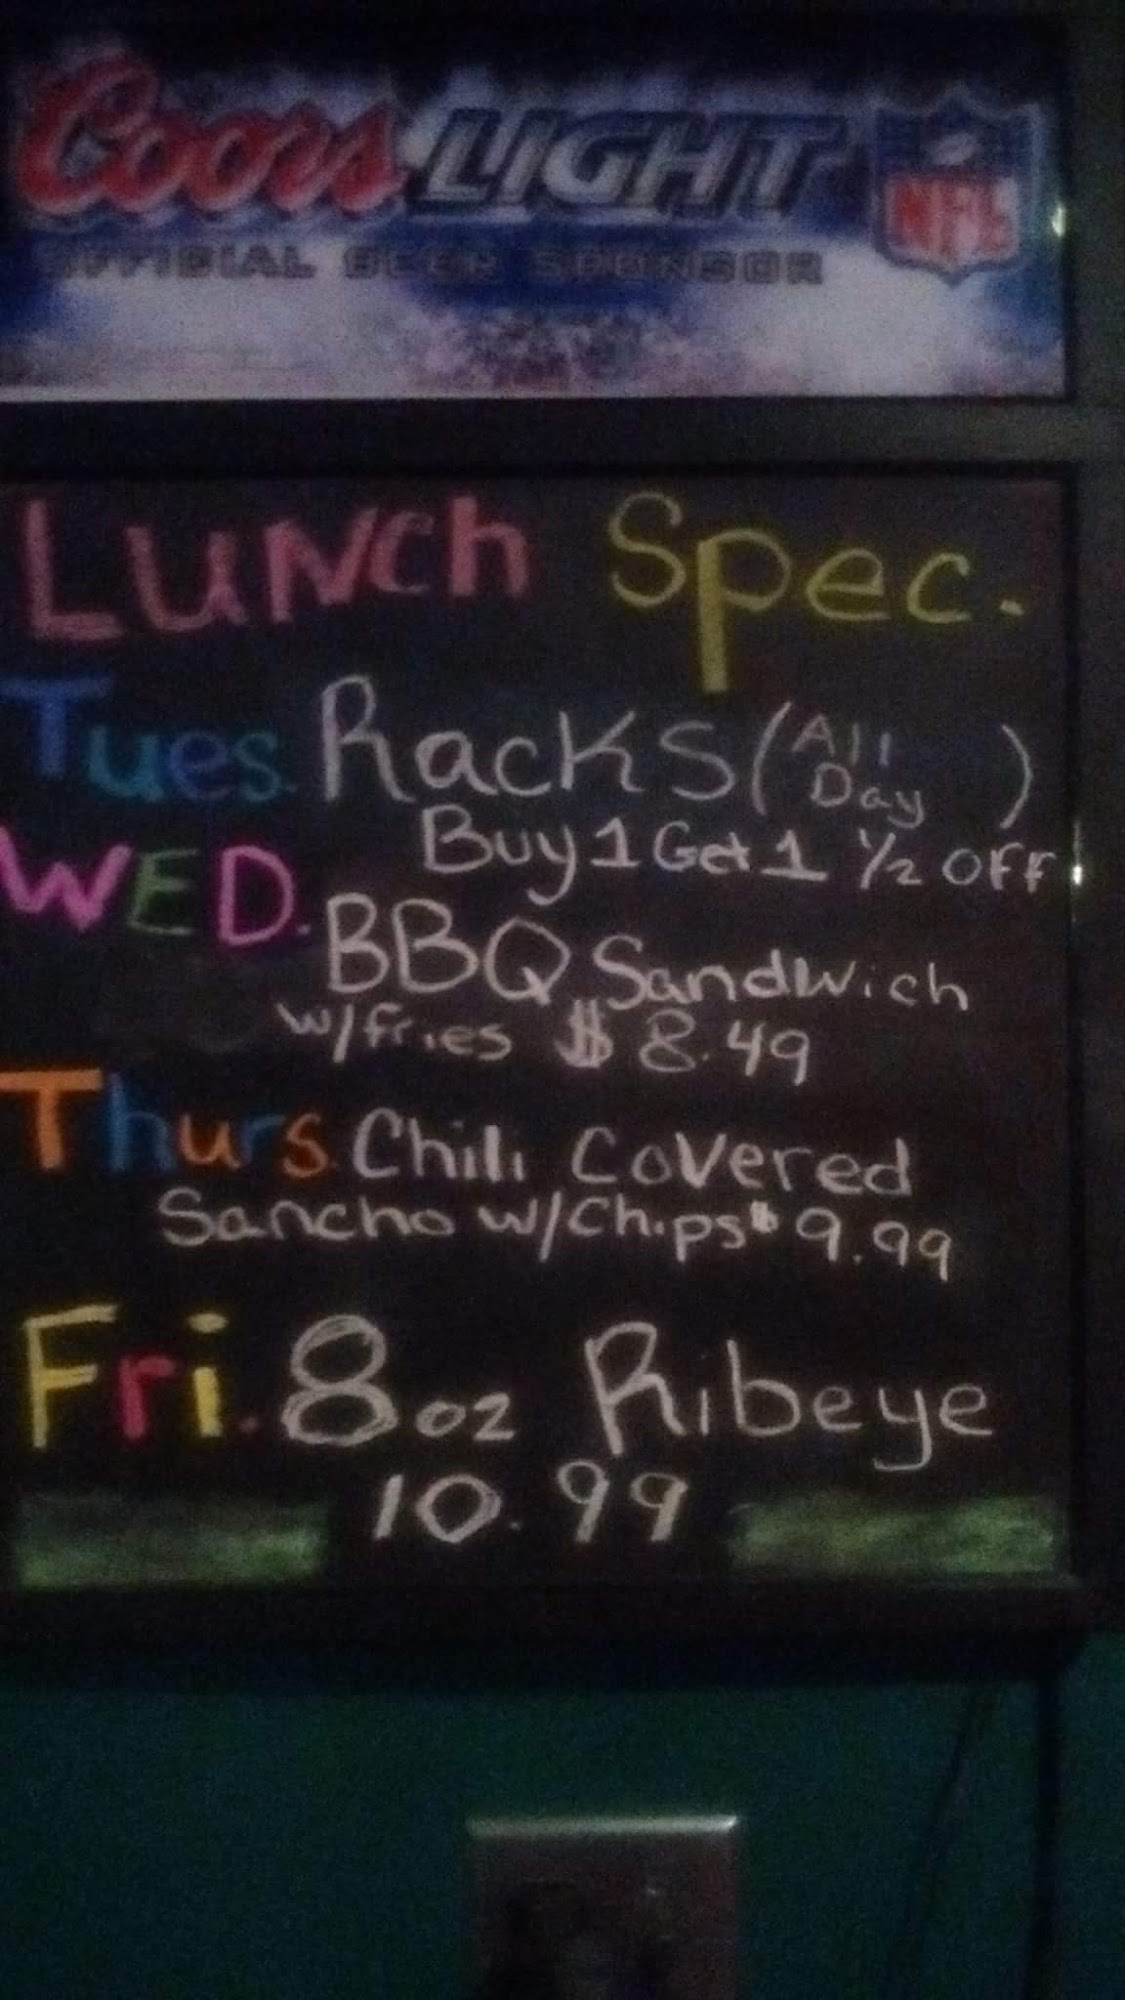 Coors LIGHT NFL
OFFICIAL BEER SPONSOR
Lunch Spec.
Tues. Racks (All Day)
Buy 1 Get 1 1/2 OFF
WED. BBQ Sandwich
w/fries $8.49
Thurs. Chili Covered
Sancho w/Chips $9.99
Fri. 8oz Ribeye
10.99